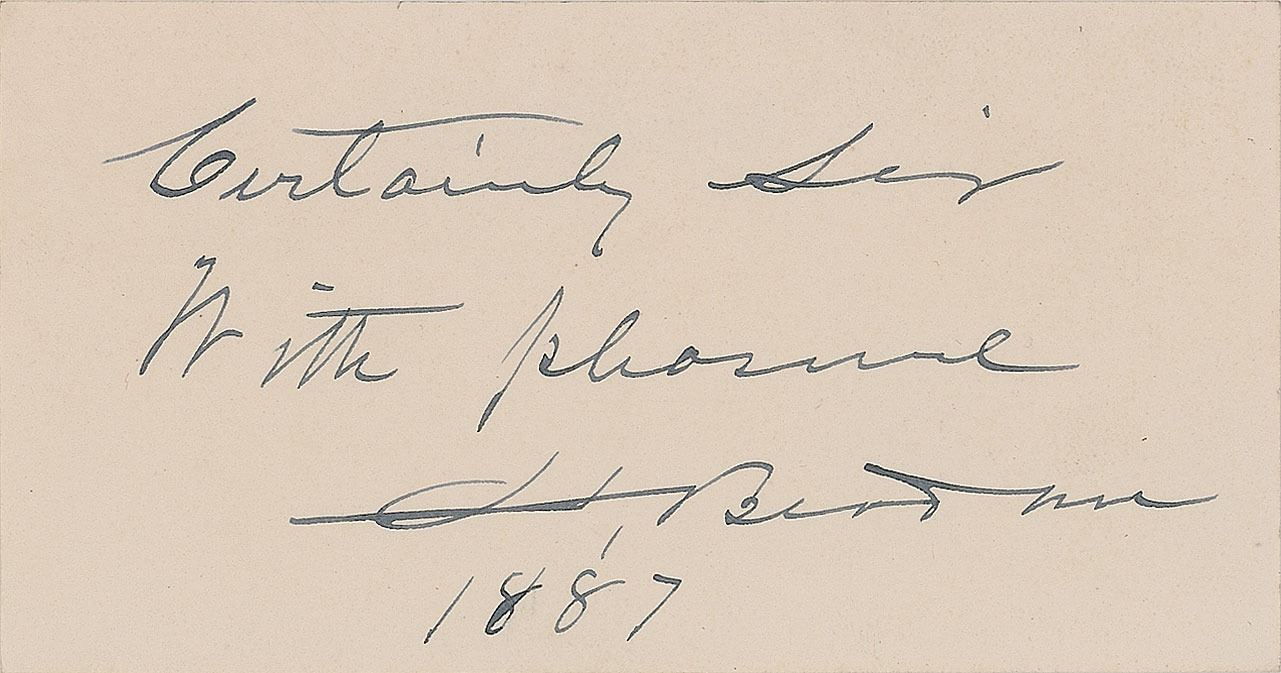 Certainly Sir
With pleasure
1887